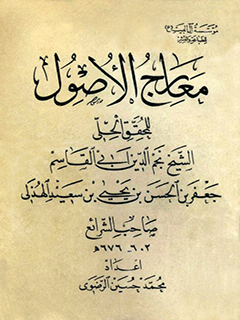 مؤسسة آل البيت (ع)
معارج الأصول
للمحقق الحلي
الشيخ نجم الدين أبي القاسم
جعفر بن الحسن بن يحيى بن سعيد الهذلي
صاحب الشرائع
٦٠٢ - ٦٧٦ هـ
إعداد
محمد حسين الرضوي